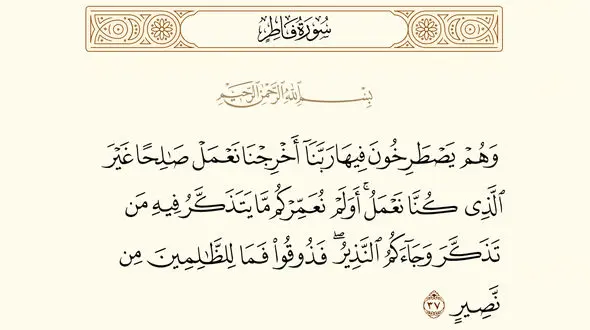 سُورَةُ فَاطِرٍ
بِسْمِ ٱللَّهِ ٱلرَّحْمَٰنِ ٱلرَّحِيمِ
وَهُمْ يَصْطَرِخُونَ فِيهَا رَبَّنَآ أَخْرِجْنَا نَعْمَلْ صَٰلِحًا غَيْرَ
ٱلَّذِى كُنَّا نَعْمَلُ ۚ أَوَلَمْ نُعَمِّرْكُم مَّا يَتَذَكَّرُ فِيهِ مَن
تَذَكَّرَ وَجَآءَكُمُ ٱلنَّذِيرُ ۖ فَذُوقُوا۟ فَمَا لِلظَّٰلِمِينَ مِن
نَّصِيرٍ ٣٧